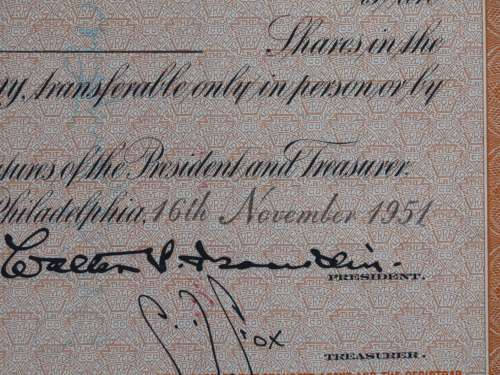 Shares in the
transferable only in person or by
of the President and Treasurer.
Philadelphia, 16th November 1951
Walter S. Franklin
PRESIDENT.
TREASURER.